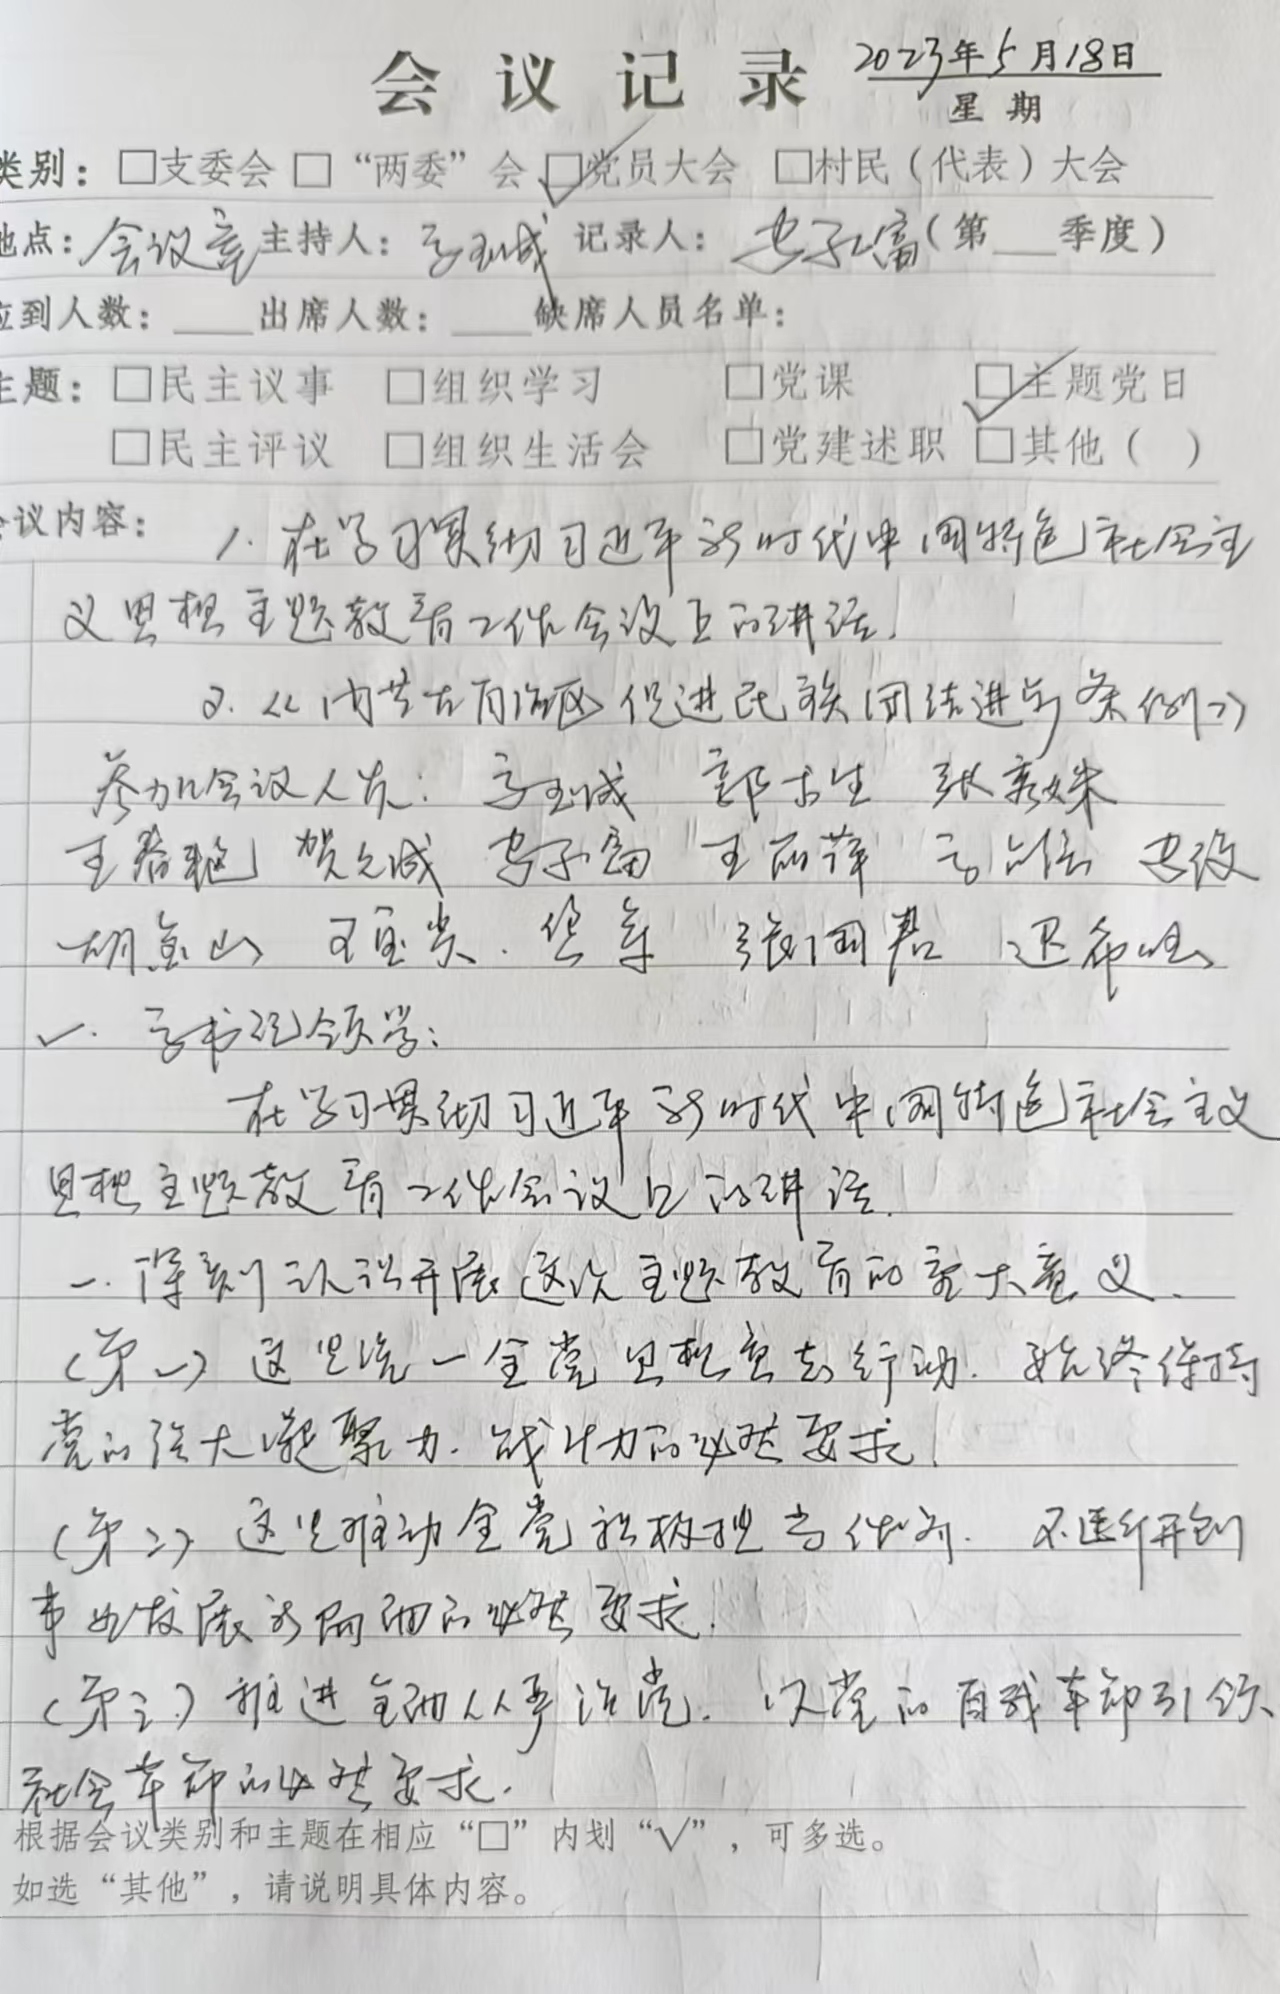 会议记录 2023年5月18日
星期
类别：□支委会 □“两委”会 ☑党员大会 □村民（代表）大会
地点：会议室 主持人： 玉成 记录人： 子富（第___季度）
应到人数：____出席人数：____缺席人员名单：
主题：□民主议事 □组织学习 □党课 ☑主题党日
□民主评议 □组织生活会 □党建述职 □其他（ ）
会议内容： 1. 在学习贯彻习近平新时代中国特色社会主
义思想主题教育工作会议上的讲话.
2.《内蒙古自治区促进民族团结进步条例》
参加会议人员： 玉成 郭 生 张 姝
王春艳 贺 成 子富 王丽萍
胡金山 张国君
一. 书记领学：
在学习贯彻习近平新时代中国特色社会主义
思想主题教育工作会议上的讲话.
一. 深刻认识开展这次主题教育的重大意义.
(第一) 这是统一全党思想意志行动. 始终保持
党的强大凝聚力. 战斗力的必然要求.
(第二) 这是推动全党积极担当作为. 不断开创
事业发展新局面的必然要求.
(第三) 推进全面从严治党. 以党的自我革命引领
社会革命的必然要求.
根据会议类别和主题在相应“□”内划“√”，可多选。
如选“其他”，请说明具体内容。